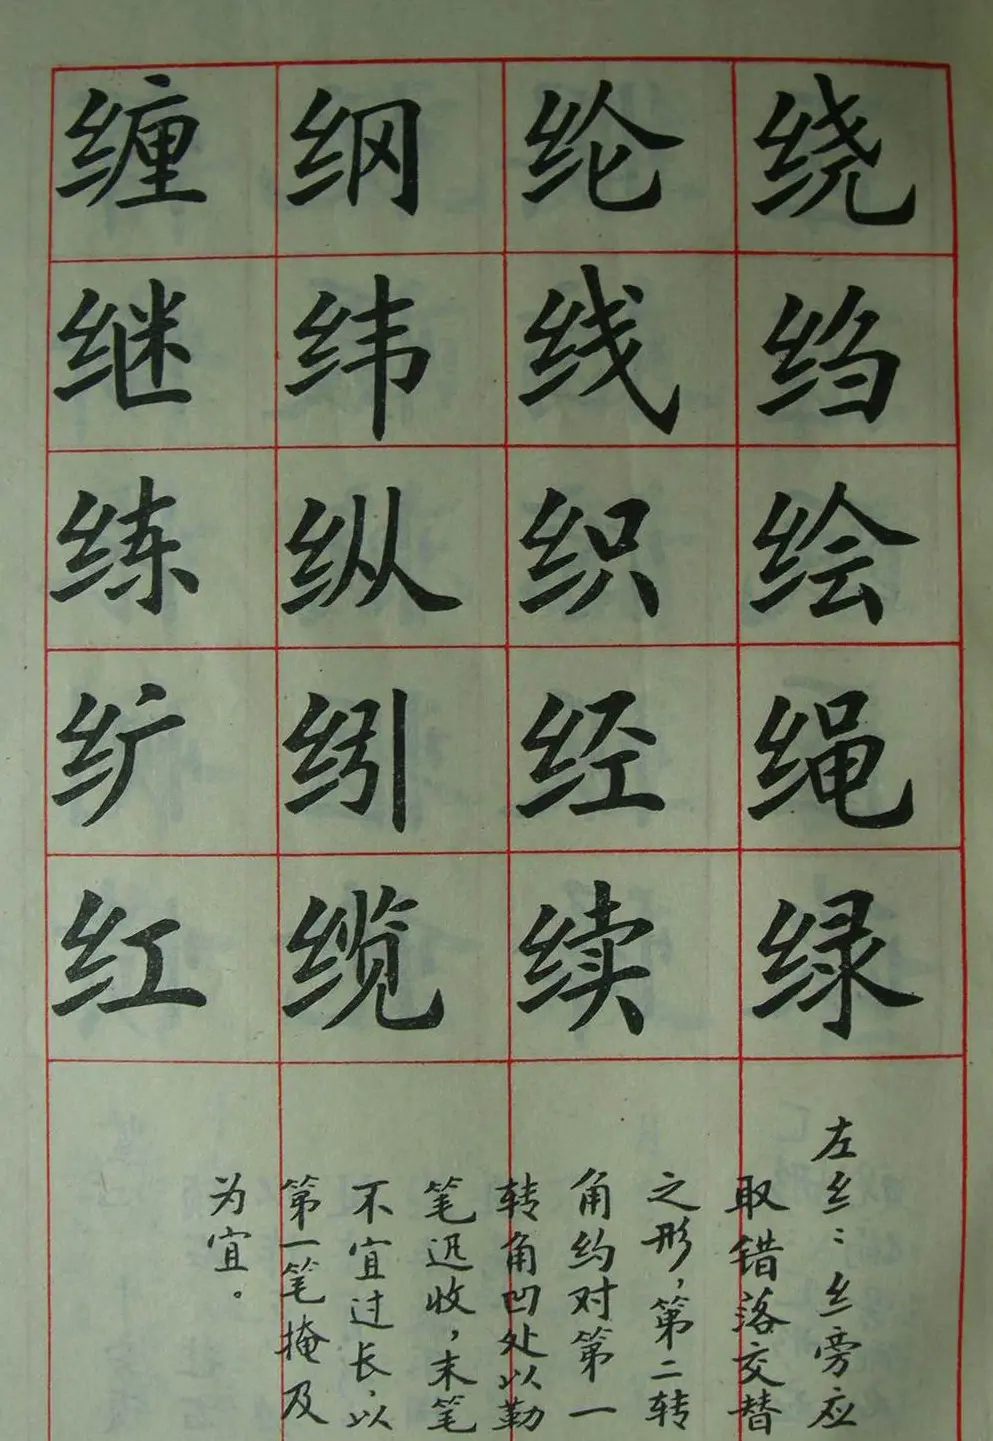 绕绉绘绳绿
纶线织经续
纲纬纵纼缆
缠继练纩红
左纟：纟旁应
取错落交替
之形，第二转
角约对第一
转角凹处以勒
笔迅收，末笔
不宜过长，以
第一笔掩及
为宜。